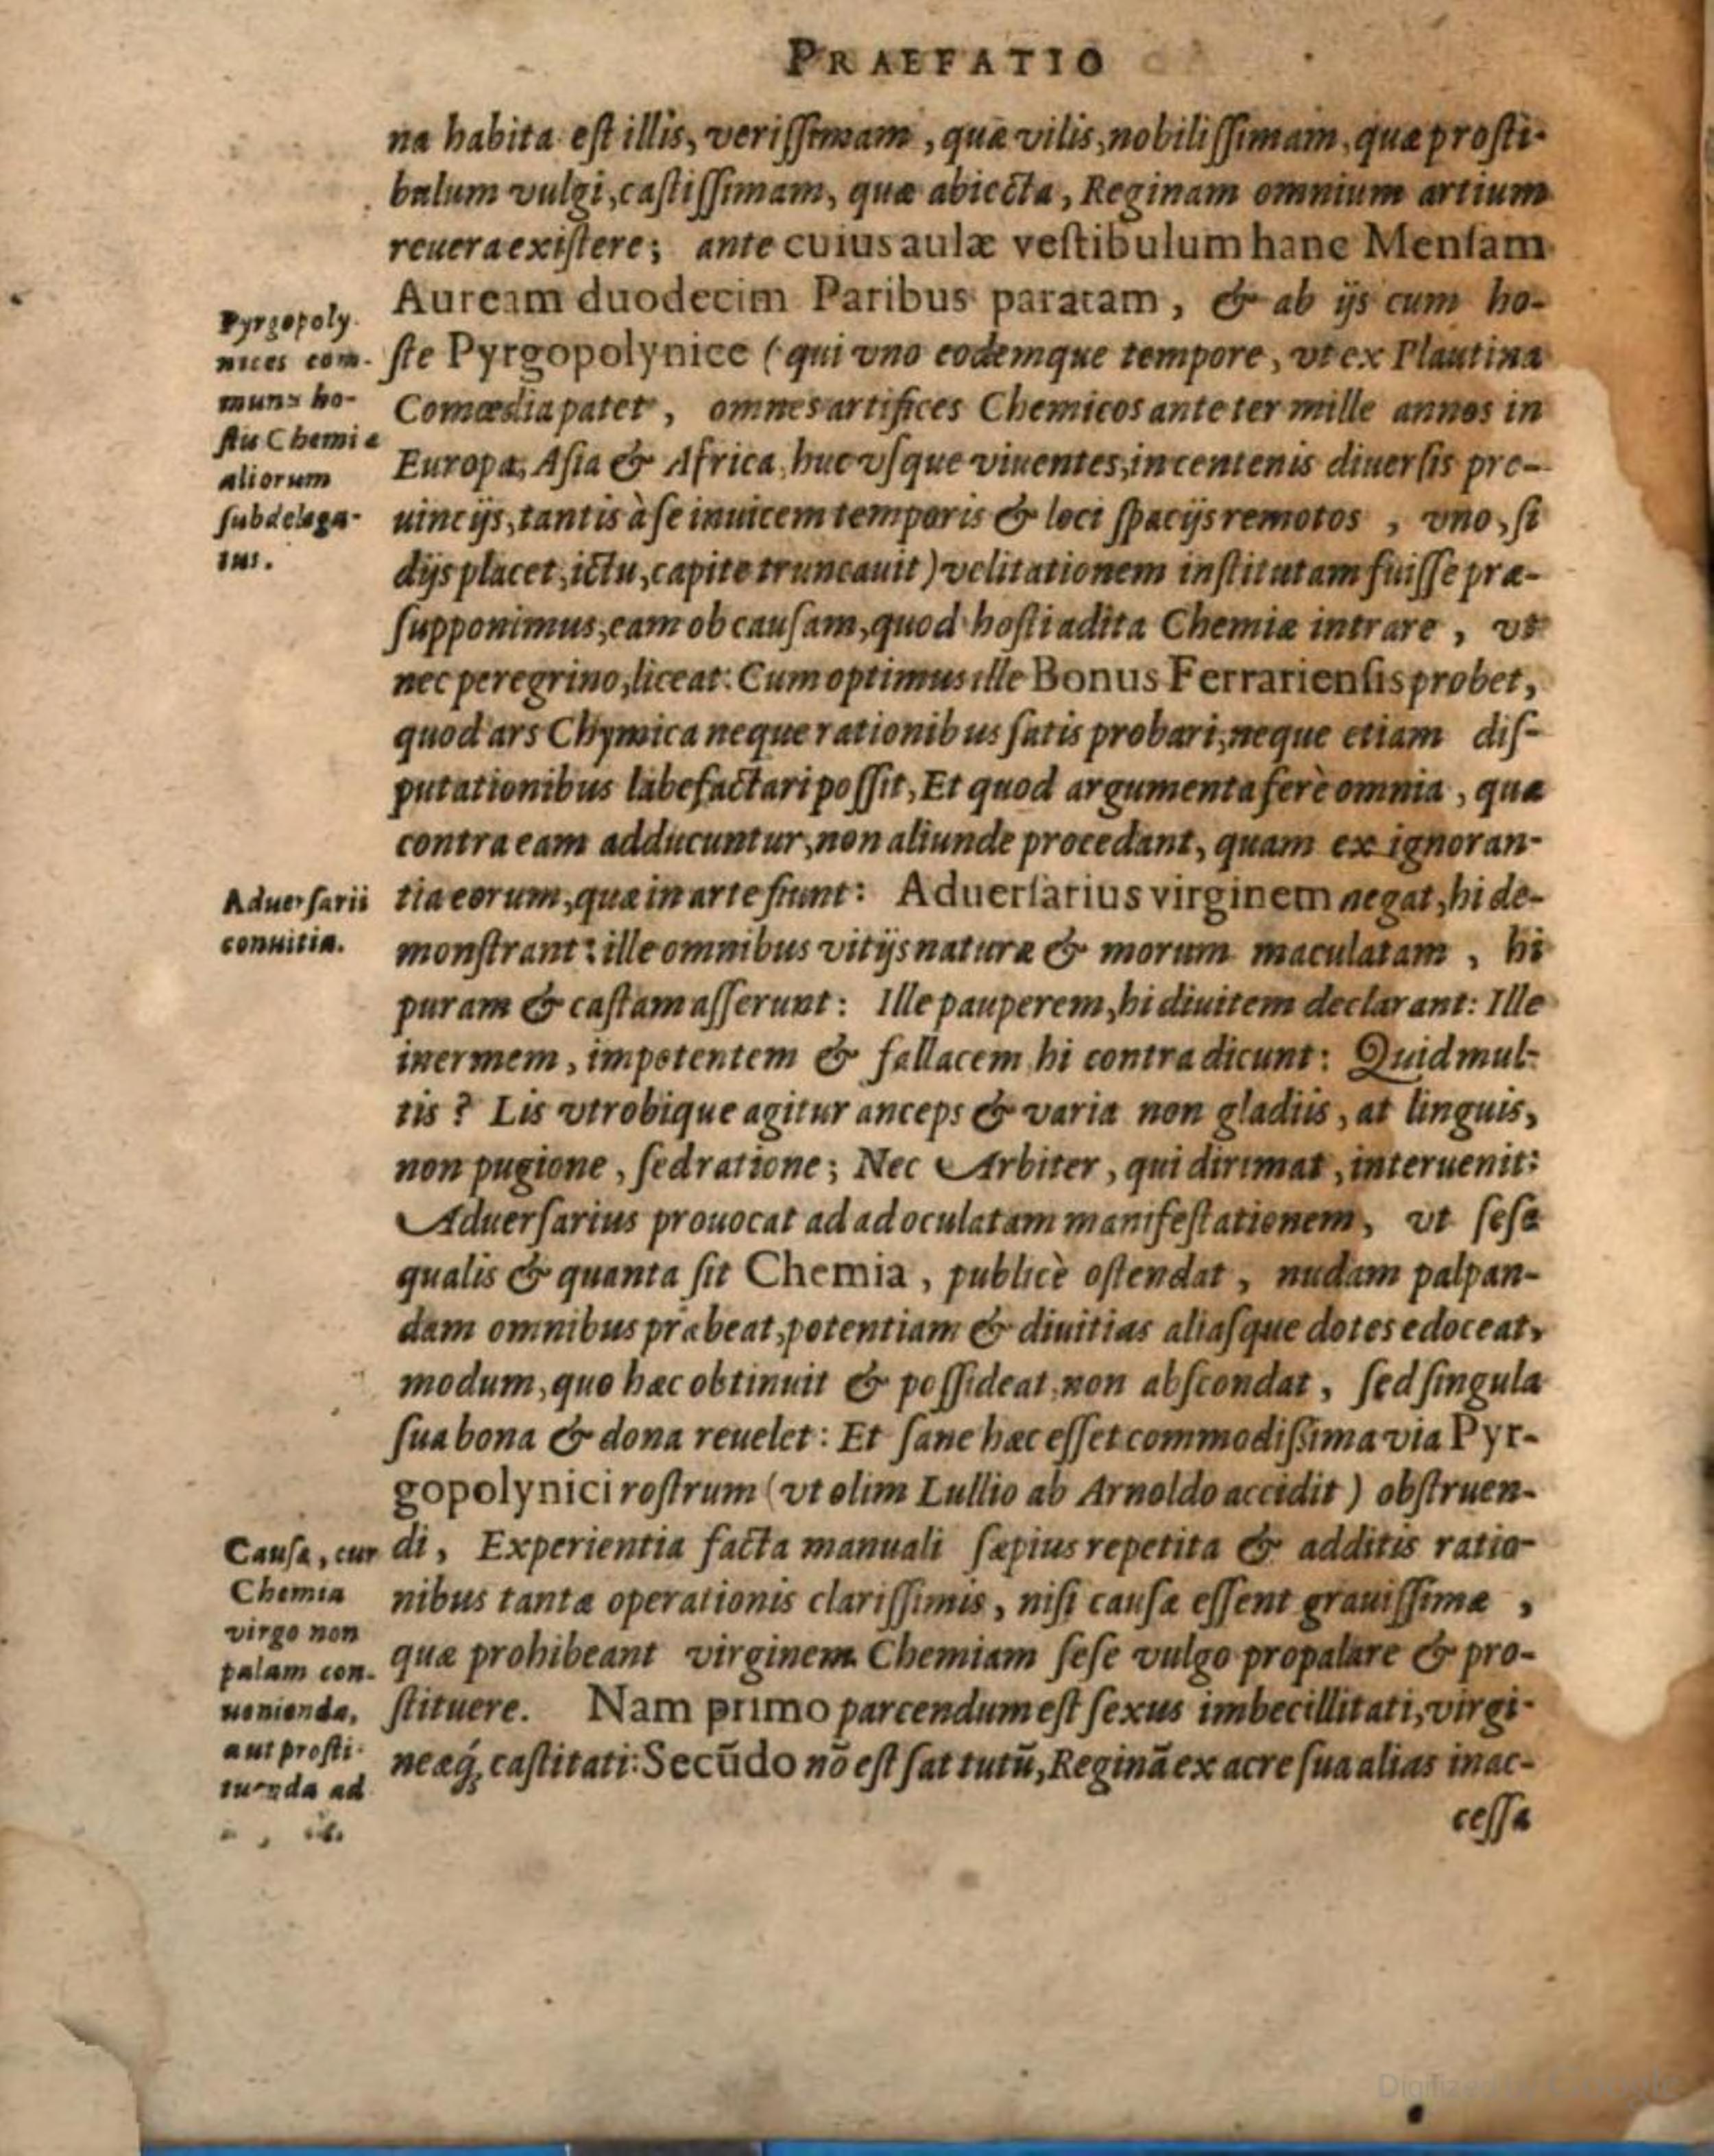 PRAEFATIO
na habita est illis, verissimam, quæ vilis, nobilissimam, quæ prosti-
bulum vulgi, castissimam, quæ abiecta, Reginam omnium artium
reuera existere; ante cuius aulæ vestibulum hanc Mensam
Auream duodecim Paribus paratam, & ab ijs cum ho-
ste Pyrgopolynice (qui vno eodemque tempore, vt ex Plautina
Comœdia patet, omnes artifices Chemicos ante ter mille annos in
Europa, Asia & Africa, huc vsque viuentes, in centenis diuersis pro-
uincijs, tantis à se inuicem temporis & loci spacijs remotos, vno, si
dijs placet, ictu, capite truncauit) velitationem institutam fuisse præ-
supponimus, eam ob causam, quod hosti adita Chemiæ intrare, vt
nec peregrino, liceat: Cum optimus ille Bonus Ferrariensis probet,
quod ars Chymica neque rationibus satis probari, neque etiam dis-
putationibus labefactari possit, Et quod argumenta ferè omnia, quæ
contra eam adducuntur, non aliunde procedant, quam ex ignoran-
tia eorum, quæ in arte fiunt: Aduersarius virginem negat, hi de-
monstrant: ille omnibus vitijs naturæ & morum maculatam, hi
puram & castam asserunt: Ille pauperem, hi diuitem declarant: Ille
inermem, impotentem & fallacem hi contradicunt: Quid mul-
tis? Lis vtrobique agitur anceps & varia non gladiis, at linguis,
non pugione, sed ratione; Nec Arbiter, qui dirimat, interuenit:
Aduersarius prouocat ad ad oculatam manifestationem, vt sese
qualis & quanta sit Chemia, publicè ostendat, nudam palpan-
dam omnibus præbeat, potentiam & diuitias aliasque dotes edoceat,
modum, quo hæc obtinuit & possideat, non abscondat, sed singula
sua bona & dona reuelet: Et sane hæc esset commodissima via Pyr-
gopolynici rostrum (vt olim Lullio ab Arnoldo accidit) obstruen-
di, Experientia facta manuali sæpius repetita & additis ratio-
nibus tantæ operationis clarissimis, nisi causæ essent grauissimæ,
quæ prohibeant virginem Chemiam sese vulgo propalare & pro-
stituere. Nam primo parcendum est sexus imbecillitati, virgi-
neæq́; castitati: Secūdo nō est sat tutū, Reginā ex acre sua alias inac-
cessa
Pyrgopoly
nices com-
munis ho-
stis Chemiæ
aliorum
subdelega-
tus.
Aduersarii
conuitia.
Causa, cur
Chemia
virgo non
palam con-
uenienda,
aut prosti-
tuenda ad